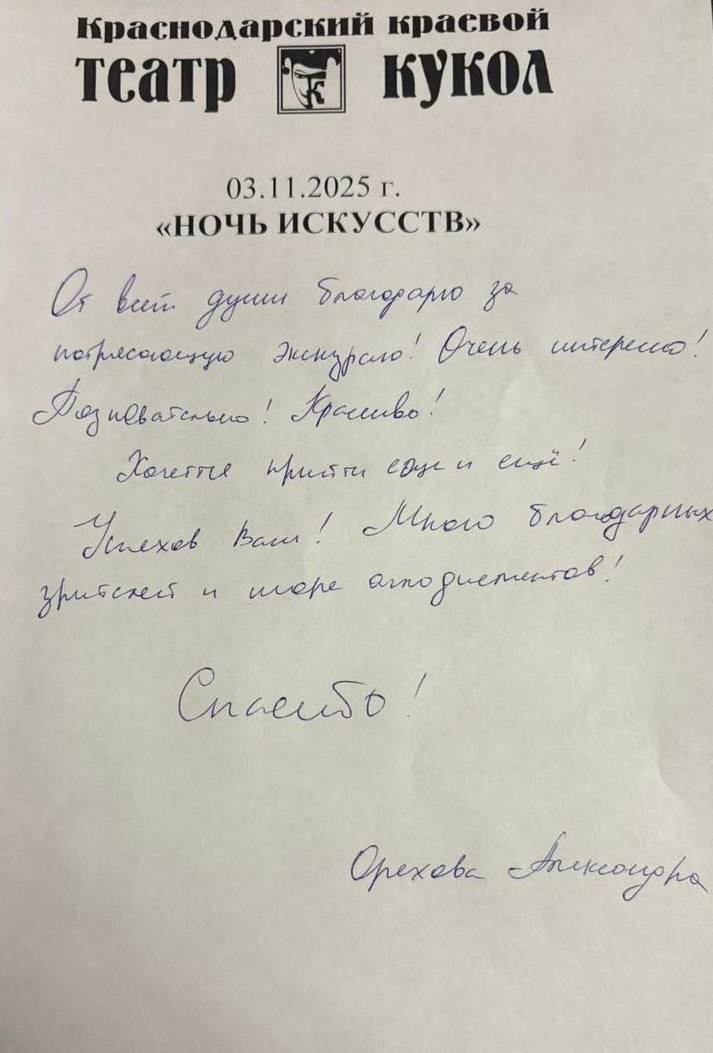 Краснодарский краевой
театр кукол
03.11.2025 г.
«НОЧЬ ИСКУССТВ»
От всей души благодарю за
потрясающую экскурсию! Очень интересно!
Познавательно! Красиво!
Хочется прийти еще и ещё!
Успехов Вам! Много благодарных
зрителей и море аплодисментов!
Спасибо!
Орехова Александра